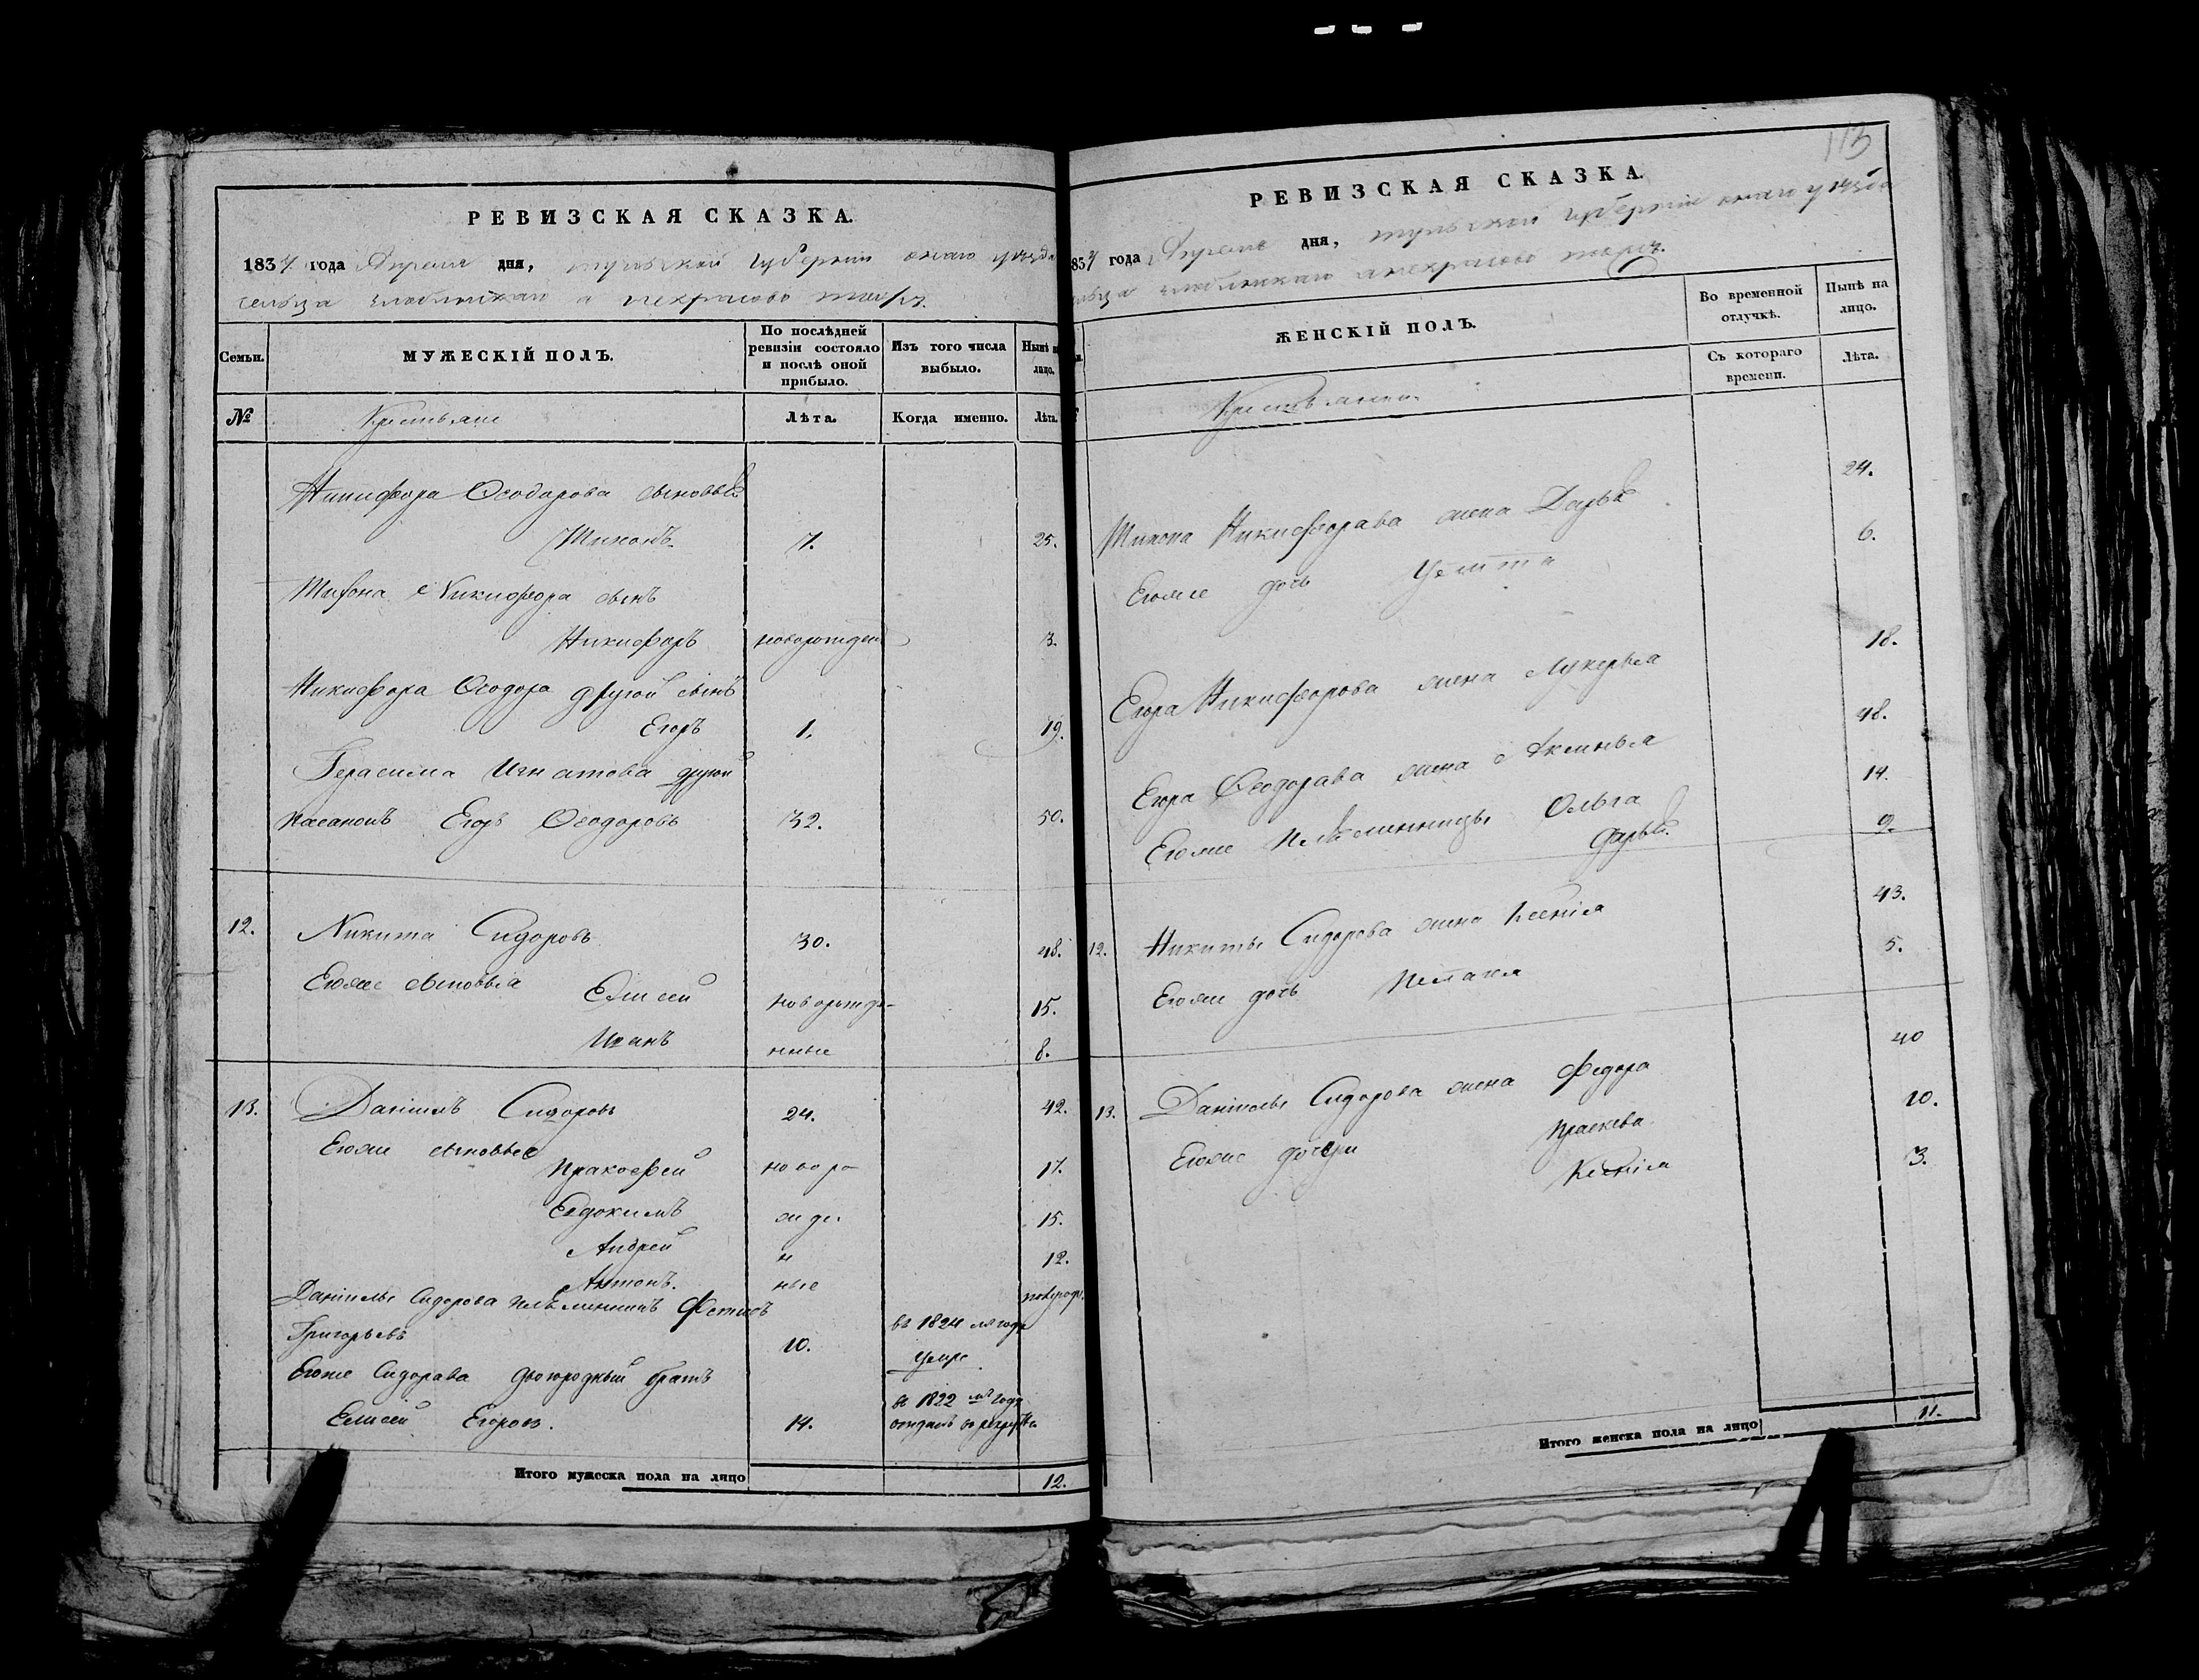 РЕВИЗСКАЯ СКАЗКА.
1834 года Апреля дня, тульской губернии онаго уезда
сельца а некрасово тожъ.
Семьи.
МУЖЕСКІЙ ПОЛЪ.
По послѣдней ревизіи состояло и послѣ оной прибыло.
Изъ того числа выбыло.
Нынѣ на лицо.
№
Крестьяне
Лѣта.
Когда именно.
Лѣта.
Никифора Ѳеодорова сыновья
Тихонъ 7. 25.
Тихона Никифора сынъ
Никифоръ новорожден 3.
Никифора Ѳеодора другой сынъ
Егоръ 1. 19.
Герасима Игнатова другой
пасанокъ Егоръ Ѳеодоровъ 32. 50.
12. Никита Сидоровъ 30. 48.
Егоже сыновья Елисей новорожде- 15.
Иванъ нные 8.
13. Данiилъ Сидоровъ 24. 42.
Егоже сыновья
Пракофей новоро 17.
Евдокимъ жде 15.
Андрей н 12.
Антонъ. ные
Данiилы Сидорова племянникъ Фетисъ
Григорьевъ 10. въ 1824 м годе умре
Егоже Сидорава двоюродный братъ
Елисей Егоров. 14. въ 1822 мъ годе отданъ в рекруты
Итого мужеска пола на лицо 12.
113
РЕВИЗСКАЯ СКАЗКА.
1834 года Апреля дня, тульской губернии онаго уезда
сельца а некрасово тожъ.
ЖЕНСКІЙ ПОЛЪ.
Во временной отлучкѣ.
Нынѣ на лицо.
Съ котораго времени.
Лѣта.
Крестьянки
Тихона Никифорава жена Дарья 24.
Егоже дочь 6.
Егора Никифорова жена Лукерья 18.
Егора Ѳеодорава жена Аксинья 48.
Егоже племянницы Ольга 14.
Дарья 9.
12. Никиты Сидорова жена Ксенiя 43.
Егоже дочь 5.
13. Данiилы Сидорова жена Федора 40
Егоже дочери Праскева 10.
Ксенiя 3.
Итого женска пола на лицо 11.